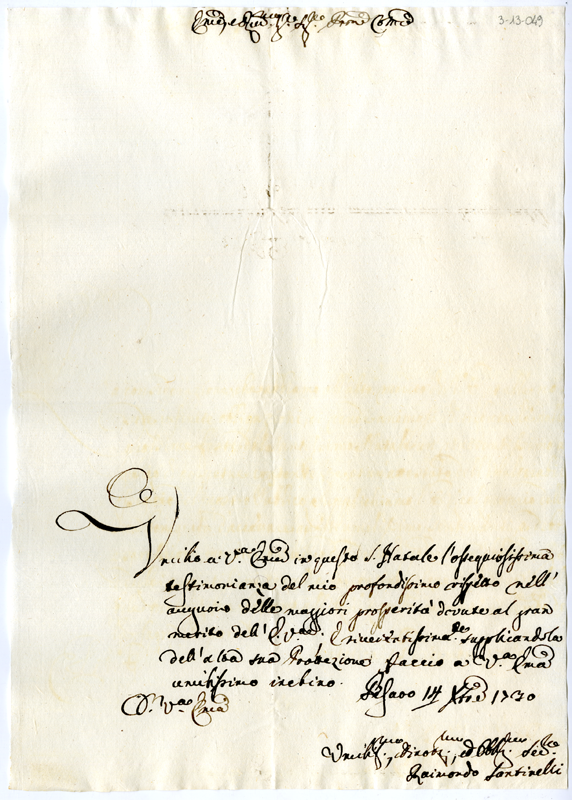 3-13-049
Em̃o, e Rm̃o Sig.r Sig.r Pron Colmo
Umilio a V.ra Em̃a in questo S. Natale l'ossequiosissima
testimonianza del mio profondissimo rispetto nell'
augurio delle maggiori prosperità dovute al gran
merito dell' E. V.ra. E riverentissimam.te supplicandola
dell' alta sua Protezione faccio a V.ra Em̃a
umilissimo inchino. Pesaro 14 Xbre 1730
D. V.ra Em̃a
Umiliss.mo, Divotiss.mo, ed Obblig.mo Ser.re
Raimondo Santinelli